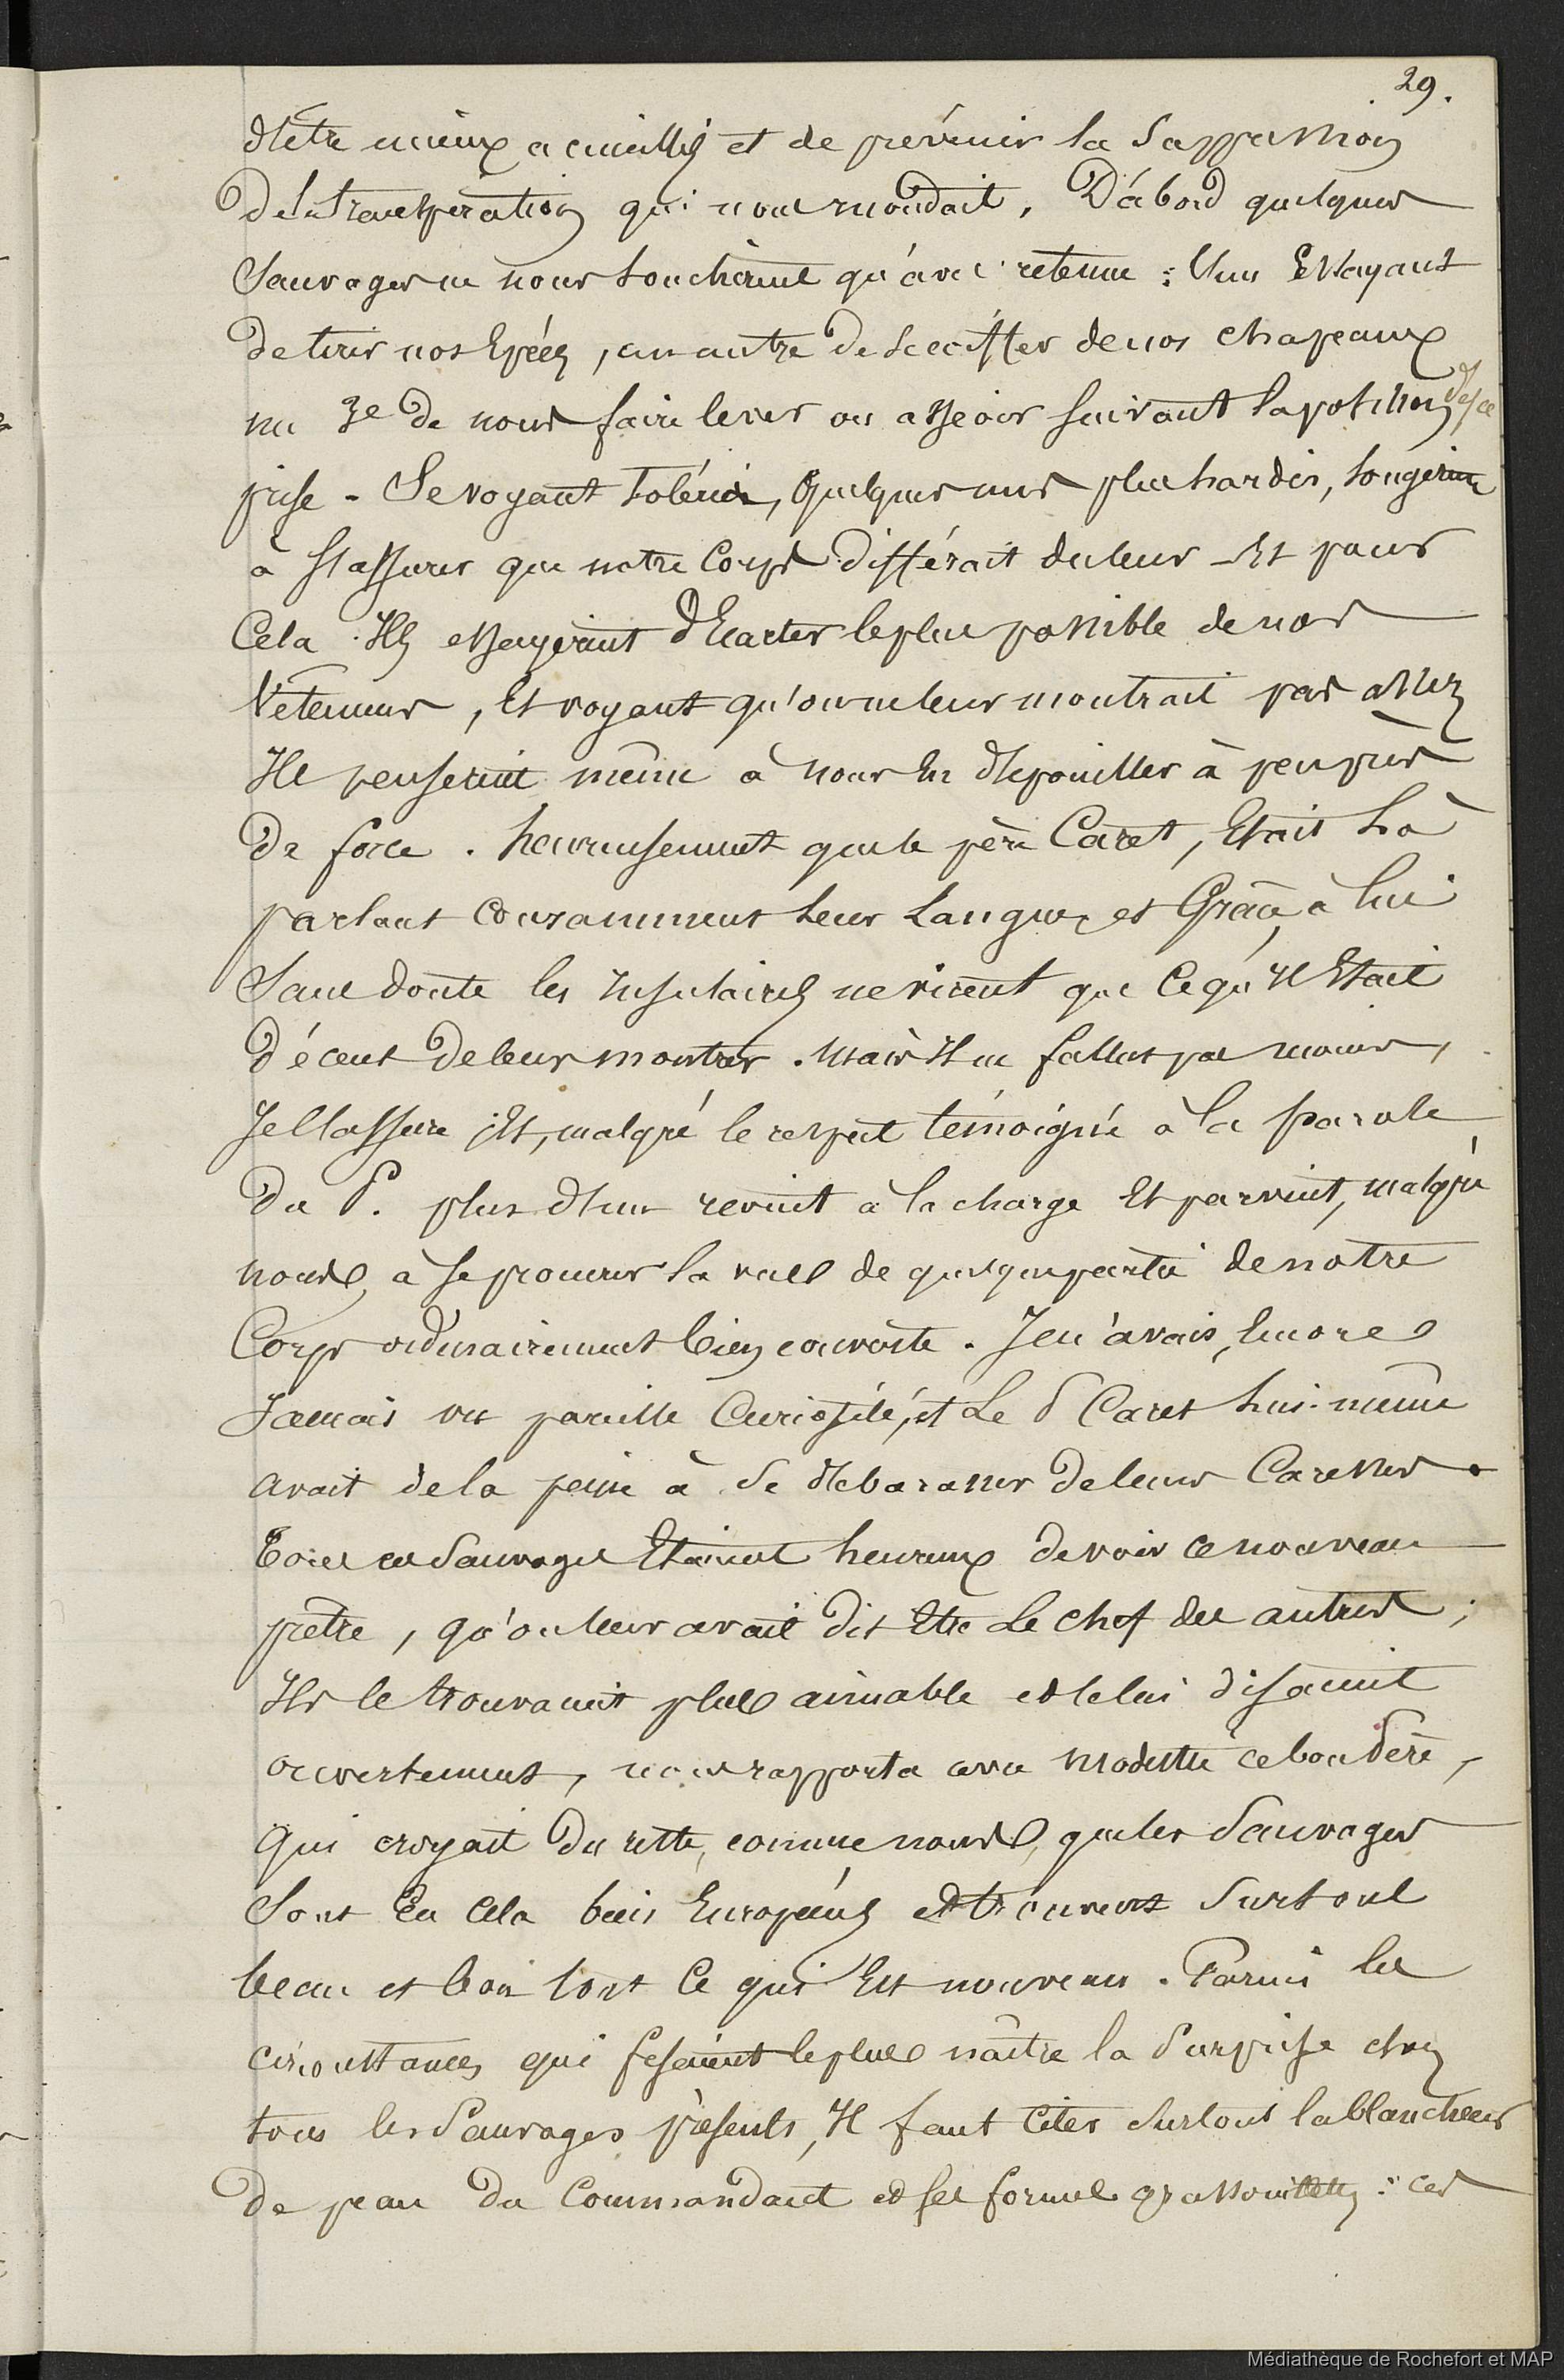 29.
d'être mieux accueillis et de prévenir la suppression
de la transpiration qui nous inondait. D'abord quelques
Sauvages ne nous touchèrent qu'avec retenue : L'un Essayant
de tirer nos Epées, un autre de se coiffer de nos chapeaux
un 3e de nous faire lever ou asseoir suivant la position déja
prise - Se voyant tolérés, Quelques uns plus hardis, songèrent
à S'assurer que notre Corps différait du leur - Et pour
Cela Ils essayèrent d'Ecarter le plus possible de nos
Vêtemens, Et voyant qu'on ne leur montrait pas assez
Ils pensèrent même à nous En dépouiller à peu près
de force. heureusement que le père Caret, Etait Là
parlant Couramment Leur Langue et Grâce à lui
Sans doute les Insulaires ne virent que Ce qu'Il Etait
décent de leur montrer. Mais Il ne fallut pas moins,
Je l'assure ; Et, malgré le respect témoigné à la parole
du P. plus d'un revint à la charge Et parvint, malgré
nous, à se procurer la vue de quelque partie de notre
Corps ordinairement bien couverte. Je n'avais, Encore
Jamais vu pareille Curiosité, et Le P Caret lui-même
avait de la peine à Se débarasser de leurs Caresses.
Tous ces Sauvages Etaient heureux de voir ce nouveau
prêtre, qu'on leur avait dit Etre Le chef des autres ;
Ils le trouvaient plus aimable et le lui disaient
ouvertement, nous rapporta avec modestie ce bon Père,
Qui croyait du reste, comme nous, que les Sauvages
Sont En Cela bien Européens et trouvent Surtout
beau et bon tout Ce qui Est nouveau. Parmi les
circonstances qui fesaient le plus naître la Surprise chez
tous les Sauvages présents, Il faut Citer Surtout la blancheur
de peau du Commandant et ses formes grassouillettes : ces
Médiathèque de Rochefort et MAP